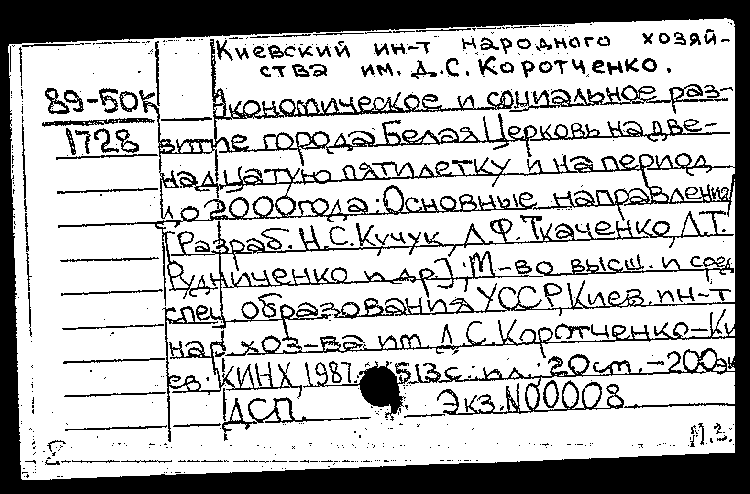 Киевский ин-т народного хозяй-
ства им. Д.С. Коротченко.
89-50К
1728
Экономическое и социальное раз-
витие города Белая Церковь на две-
надцатую пятилетку и на период
до 2000 года: Основные направления/
[Разраб. Н.С. Кучук, Л.Ф. Ткаченко, Л.Т.
Рудниченко и др]; М-во высш. и сред
спец образования УССР, Киев. ин-т
нар хоз-ва им Д.С. Коротченко-Ки
ев: КИНХ, 1987.- 513 с.: ил.; 20 ст. - 200 эк
ДСП. Экз. N00008
М.З.